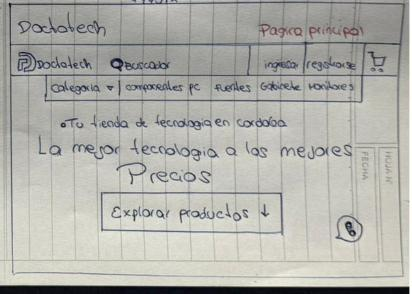 Doctatech Pagina principal
Doctatech Buscador ingresar registrarse
Categoria componentes pc fuentes Gabinete Monitores
Tu tienda de tecnologia en cordoba
La mejor tecnologia a los mejores
Precios
Explorar productos ↓
HOJA Nº
FECHA